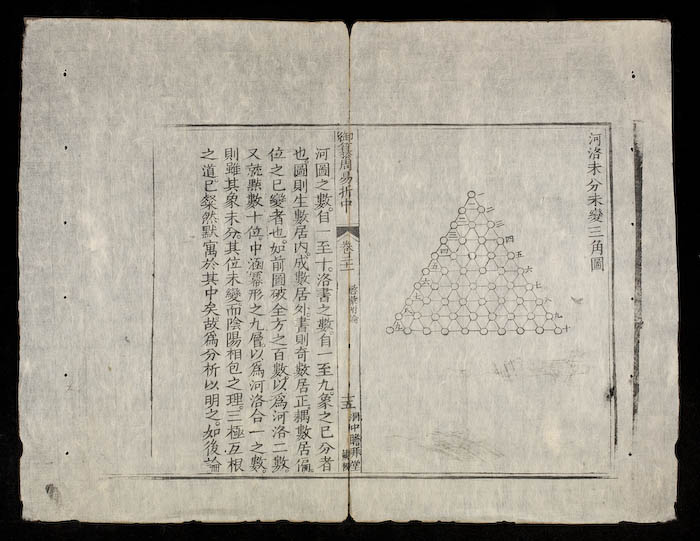 河洛未分未變三角圖
一
二
三
四
五
六
七
八
九
十
御纂周易折中
啓蒙附論
十五
河圖之數。自一至十。洛書之數。自一至九。象之已分者
也。圖則生數居內。成數居外。書則奇數居正。耦數居偏。
位之已變者也。如前圖破全方之百數。以爲河洛二數。
又就點數十位。中涵冪形之九層。以爲河洛合一之數。
則雖其象未分。其位未變。而陰陽相包之理。三極互根
之道。已粲然默寓於其中矣。故爲分析以明之。如後